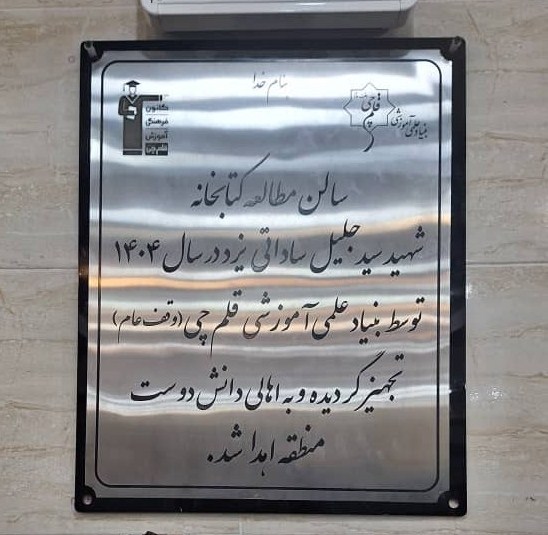 بنام خدا
قلم چی
بنیاد علمی آموزشی
کانون
فرهنگی
آموزش
قلم‌چی
سالن مطالعه کتابخانه
شهید سید جلیل ساداتی یزد در سال ۱۴۰۴
توسط بنیاد علمی آموزشی قلم چی (وقف عام)
تجهیز گردیده و به اهالی دانش دوست
منطقه اهدا شد.